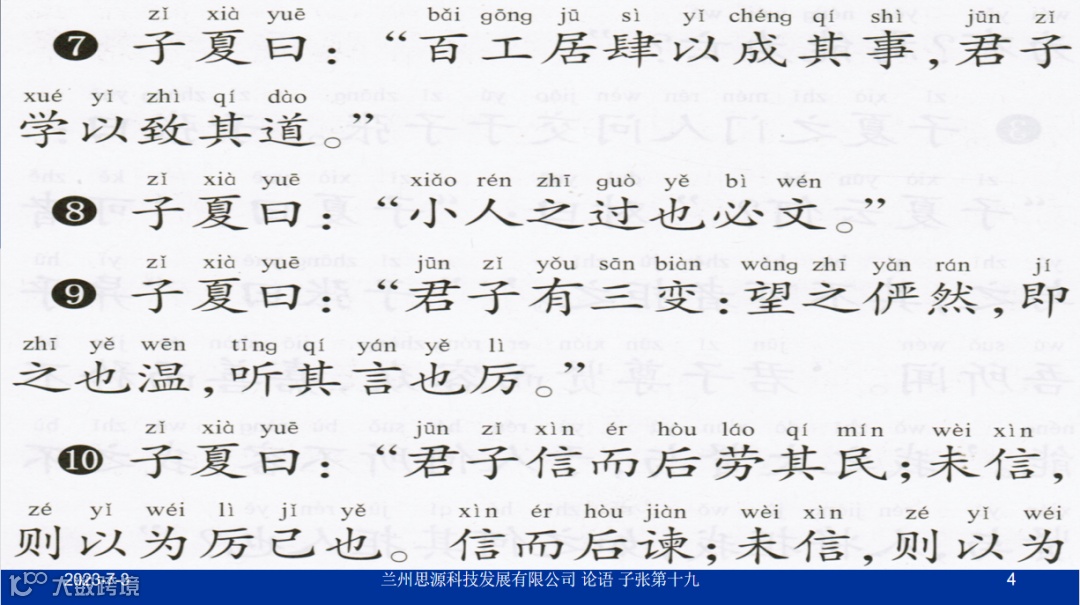 zǐ xià yuē bǎi gōng jū sì yǐ chéng qí shì jūn zǐ
❼ 子夏曰：“百工居肆以成其事，君子
xué yǐ zhì qí dào
学以致其道。”
zǐ xià yuē xiǎo rén zhī guò yě bì wén
❽ 子夏曰：“小人之过也必文。”
zǐ xià yuē jūn zǐ yǒu sān biàn wàng zhī yǎn rán jí
❾ 子夏曰：“君子有三变：望之俨然，即
zhī yě wēn tīng qí yán yě lì
之也温，听其言也厉。”
zǐ xià yuē jūn zǐ xìn ér hòu láo qí mín wèi xìn
❿ 子夏曰：“君子信而后劳其民；未信，
zé yǐ wéi lì jǐ yě xìn ér hòu jiàn wèi xìn zé yǐ wéi
则以为厉己也。信而后谏；未信，则以为
大数跨境
兰州思源科技发展有限公司 论语 子张第十九
4